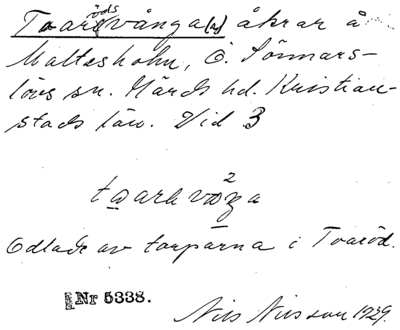 Tvarödsvånga(r) åkrar å
Maltesholm, Ö. Sönnars-
lövs sn. Gärds hd. Kristian-
stads län. Vid 3
Odlade av torparna i Tvaröd.
Nr 5338.
Nils Nilsson 1929.